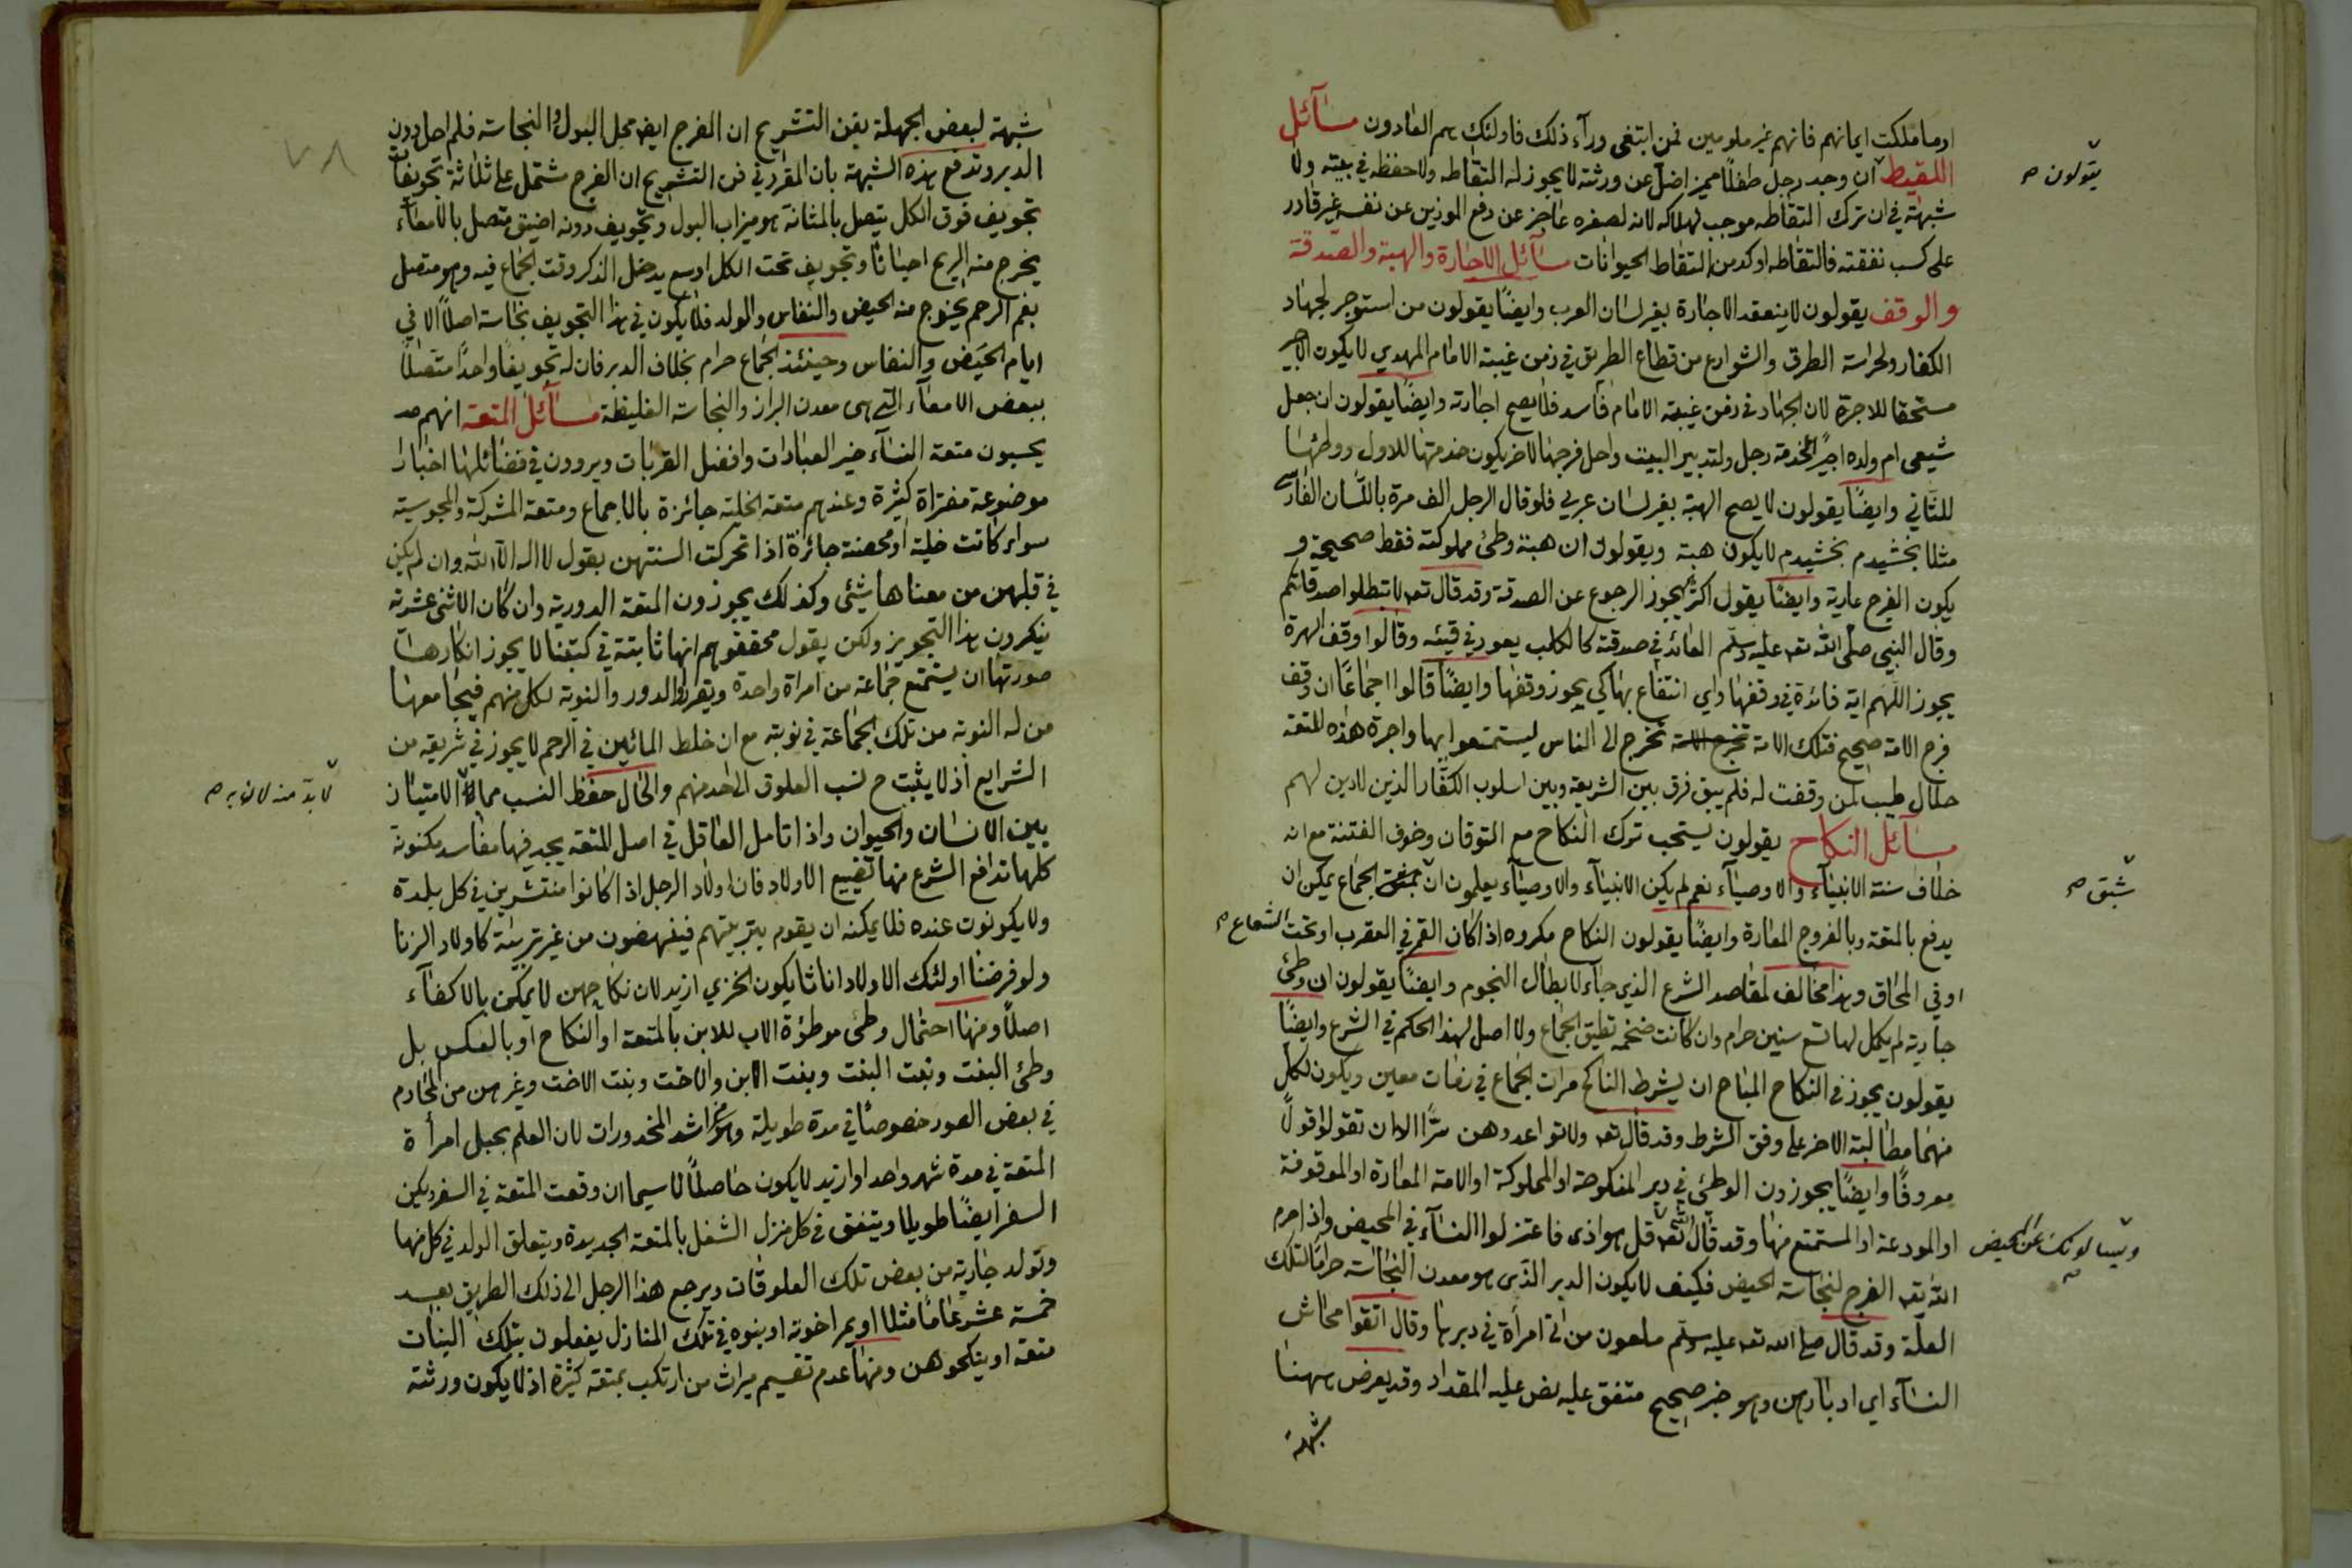 او ما ملكت ايمانهم فانهم غير ملومين فمن ابتغى ورآء ذلك فاولئك هم العادون مسآئل
اللقيط ان وجد رجل طفلاً مميز اضلّ عن ورثته لا يجوز له التقاطه ولا حفظه في بيته ولا
يقولون صح
شبهة في ان ترك التقاطه موجب لهلاكه لانه لصغره عاجز عن دفع الموذين عن نفسه غير قادر
على كسب نفقته فالتقاطه اوكد من التقاط الحيوانات مسآئل الاجارة والهبة والصدقة
والوقف يقولون لا ينعقد الاجارة بغير لسان العرب وايضًا يقولون من استوجر لجهاد
الكفار ولحراسة الطرق والشوارع من قطاع الطريق في زمن غيبة الامام المهدي لا يكون الاجير
مستحقا للاجرة لان الجهاد في زمن غيبة الامام فآسد فلا يصح اجارته وايضًا يقولون ان جعل
شيعي ام ولده اجيرًا لخدمة رجل ولتدبير البيت واحل فرجها لاخر يكون خدمتها للاول ووطئها
للثاني وايضًا يقولون لا يصح الهبة بغير لسان عربي فلو قال الرجل الف مرة باللسان الفارسي
مثلا بخشيدم بخشيدم لا يكون هبة ويقولون ان هبة وطئ مملوكته فقط صحيحة و
يكون الفرج عارية وايضًا يقول اكثرهم يجوز الرجوع عن الصدقة وقد قال تعه لا تبطلوا صدقاتكم
وقال النبي صلى الله تعه عليه وسلم العائد في صدقته كالكلب يعود في قيئه وقالوا وقف الهرة
يجوز اللهم اية فائدة في وقفها واي انتفاع بها كي يجوز وقفها وايضًا قالوا اجماعًا ان وقف
فرج الامة صحيح فتلك الامة تخرج الى الناس ليستمتعوا بها واجرة هذه المتعة
حلال طيب لمن وقفت له فلم يبق فرق بين الشريعة وبين اسلوب الكفّار الذين لا دين لهم
مسآئل النكاح يقولون يستحب ترك النكاح مع التوقان وخوف الفتنة مع انه
خلاف سنة الانبيآء والاوصيآء نعم لم يكن الانبيآء والاوصيآء يعلمون ان الجماع يمكن ان
شبق صح
يدفع بالمتعة وبالفروج المعارة وايضًا يقولون النكاح مكروه اذا كان القمر في العقرب او تحت الشعاع صح
او في المحاق وهذا مخالف لمقاصد الشرع الذي جآء لابطال النجوم وايضًا يقولون ان وطئ
جارية لم يكمل لها تسع سنين حرام وان كانت ضخمة تطيق الجماع ولا اصل لهذا الحكم في الشرع وايضًا
يقولون يجوز في النكاح المباح ان يشرط الناكح مرات الجماع في زمان معين ويكون لكل
منهما مطالبة الاخر على وفق الشرط وقد قال تعه ولا تواعدوهن سرًّا الا ان تقولوا قولاً
معروفًا وايضًا يجوزون الوطئ في دبر المنكوحة او المملوكة او الامة المعارة او الموقوفة
او المودعة او المستمتع منها وقد قال الله تعه قل هو اذى فاعتزلوا النسآء في المحيض واذ احرم
ويسالونك عن المحيض صح
الله تعه الفرج لنجاسة الحيض فكيف لا يكون الدبر الذي هو معدن النجاسة حراما لتلك
العلّة وقد قال صلى الله تعه عليه وسلم ملعون من اتى امرأة في دبرها وقال اتقوا محاش
النسآء اي ادبارهن وهو خبر صحيح متفق عليه نص عليه المقداد وقد يعرض ههنا
شبهة
شبهة لبعض الجهلة بفن التشريح ان الفرج ايضا محل البول والنجاسة فلم احل دون
الدبر وتدفع هذه الشبهة بان المقرر في فن التشريح ان الفرج مشتمل على ثلاثة تجويفات
٧٨
تجويف فوق الكل يتصل بالمثانة هو ميزاب البول وتجويف دونه اضيق متصل بالامعاء
يخرج منه الريح احيانًا وتجويف تحت الكل اوسع يدخل الذكر وقت الجماع فيه وهو متصل
بفم الرحم يخرج منه الحيض والنفاس والولد فلا يكون في هذا التجويف نجاسة اصلاً الا في
ايام الحيض والنفاس وحينئذ الجماع حرام بخلاف الدبر فان له تجويفًا واحدًا متصلاً
ببعض الامعآء التي هي معدن البراز والنجاسة الغليظة مسآئل المتعة انهم
يحسبون متعة النسآء خير العبادات وافضل القربات ويروون في فضائلها اخبارا
موضوعة مفتراة كثيرة وعندهم متعة الخلية جائزة بالاجماع ومتعة المشركة والمجوسية
سواء كانت خلية او محصنة جائزة اذا تحركت السنتهن بقول لا اله الا الله وان لم يكن
في قلبهن من معناها شيئ وكذلك يجوزون المتعة الدورية وان كان الاثنى عشرية
ينكرون هذا التجويز ولكن يقول محققوهم انها ثابتة في كتبنا لا يجوز انكارها
صورتها ان يستمتع جماعة من امراة واحدة ويقرروا الدور والنوبة لكل منهم فيجامعها
من له النوبة من تلك الجماعة في نوبته مع ان خلط المائين في الرحم لا يجوز في شريعة من
الشرايع اذ لا يثبت ح نسب العلوق الى احد منهم والحال حفظ النسب مما الامتياز
لا بدّ منه لان به صح
بين الانسان والحيوان واذا تامل العاقل في اصل المتعة يجد فيها مفاسد مكنونة
كلها تدافع الشرع منها تضييع الاولاد فان اولاد الرجل اذا كانوا منتشرين في كل بلدة
ولا يكونون عنده فلا يمكنه ان يقوم بتربيتهم فينهضون من غير تربية كاولاد الزنا
ولو فرضنا اولئك الاولاد اناثا يكون الخزي ازيد لان نكاحهن لا يمكن بالاكفآء
اصلاً ومنها احتمال وطئ موطؤة الاب للابن بالمتعة او النكاح او بالعكس بل
وطئ البنت وبنت البنت وبنت الابن والاخت وبنت الاخت وغيرهن من المحارم
في بعض الصور خصوصًا في مدة طويلة وهو اشد المحذورات لان العلم بحبل امرأة
المتعة في مدة شهر واحد او ازيد لا يكون حاصلاً لا سيما ان وقعت المتعة في السفر ويكون
السفر ايضًا طويلا ويتفق في كل منزل الشغل بالمتعة الجديدة ويتعلق الولد في كل منها
وتولد جارية من بعض تلك العلوقات ويرجع هذا الرجل الى ذلك الطريق بعد
خمسة عشر عامًا مثلا او يمر اخوته او بنوه في تلك المنازل يفعلون بتلك البنات
متعة او ينكحوهن ومنها عدم تقسيم ميراث من ارتكب بمتعة كثيرة اذ لا يكون ورثته